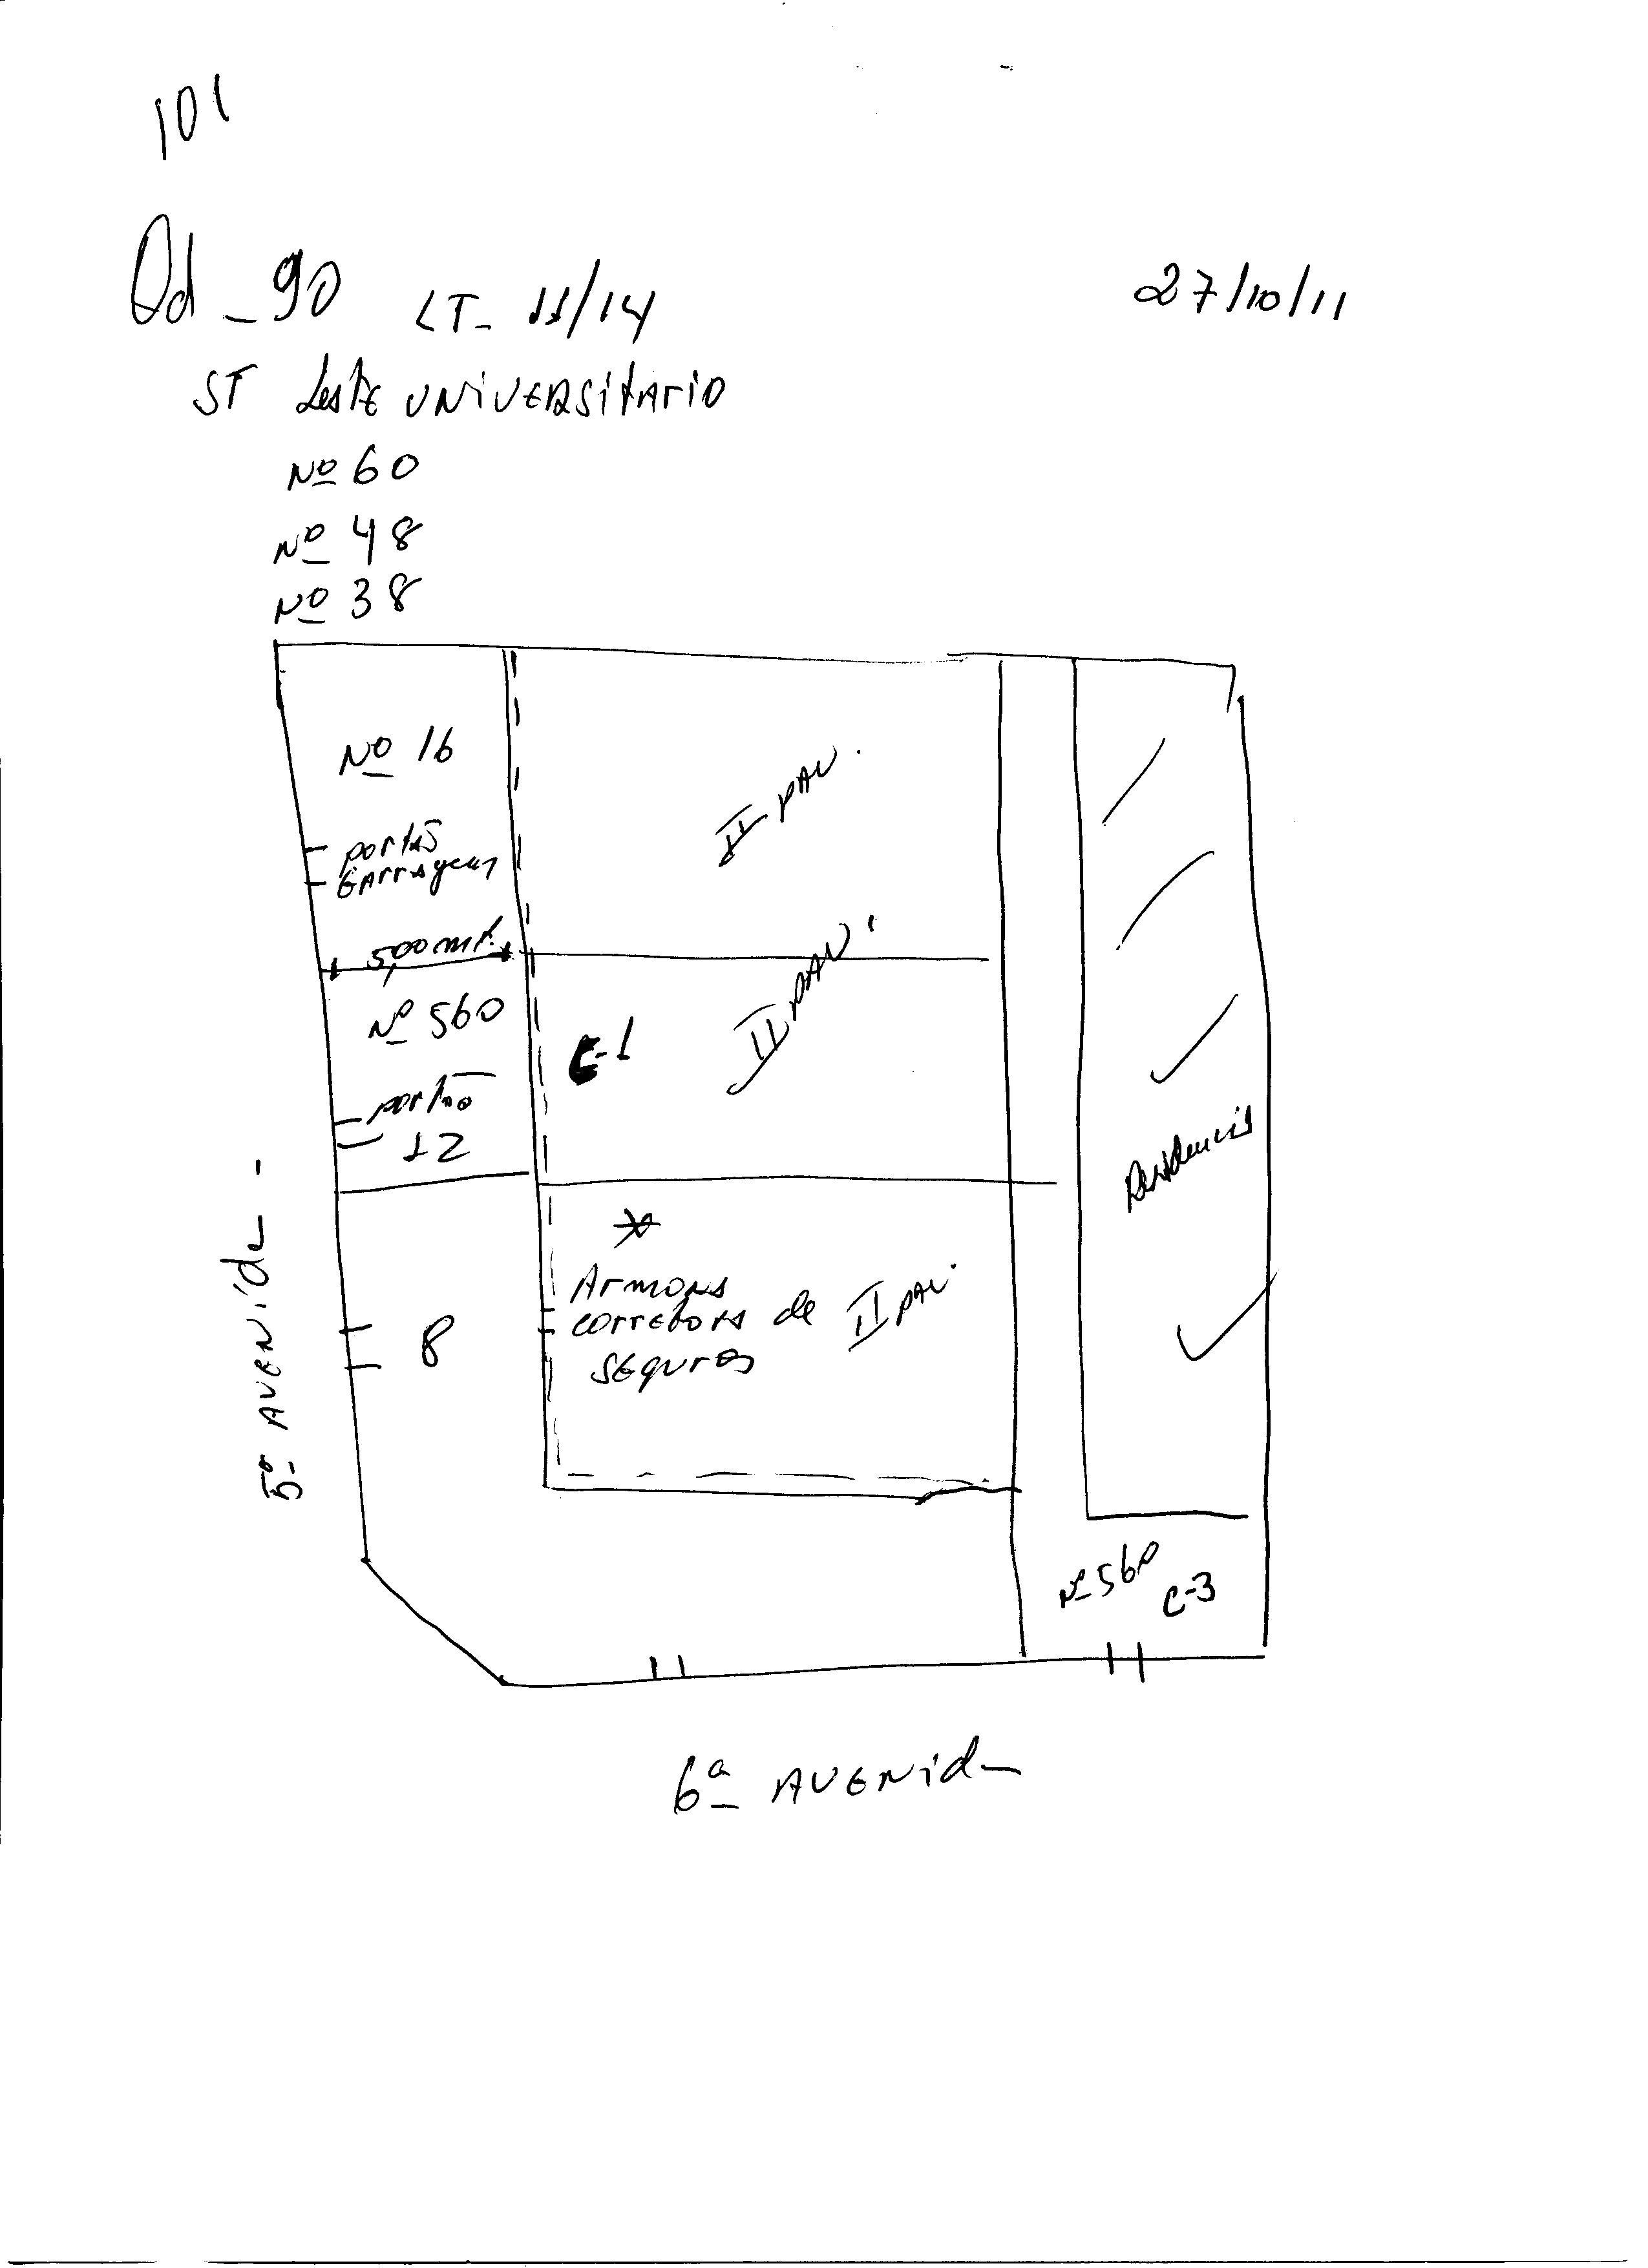 101
Qd - 90 LT- 11/14
27/10/11
ST Leste UNIVERSITARIO
Nº 60
Nº 48
Nº 38
Nº 16
portão
GArrAgem
5,00 mt.
Nº 560
portão
12
8
II PAV.
II PAV.
C-1
*
Armons
corretora de
seguros
II PAV.
Residencia
Nº 560
C-3
5ª AVENIDA -
6ª AVENIDA